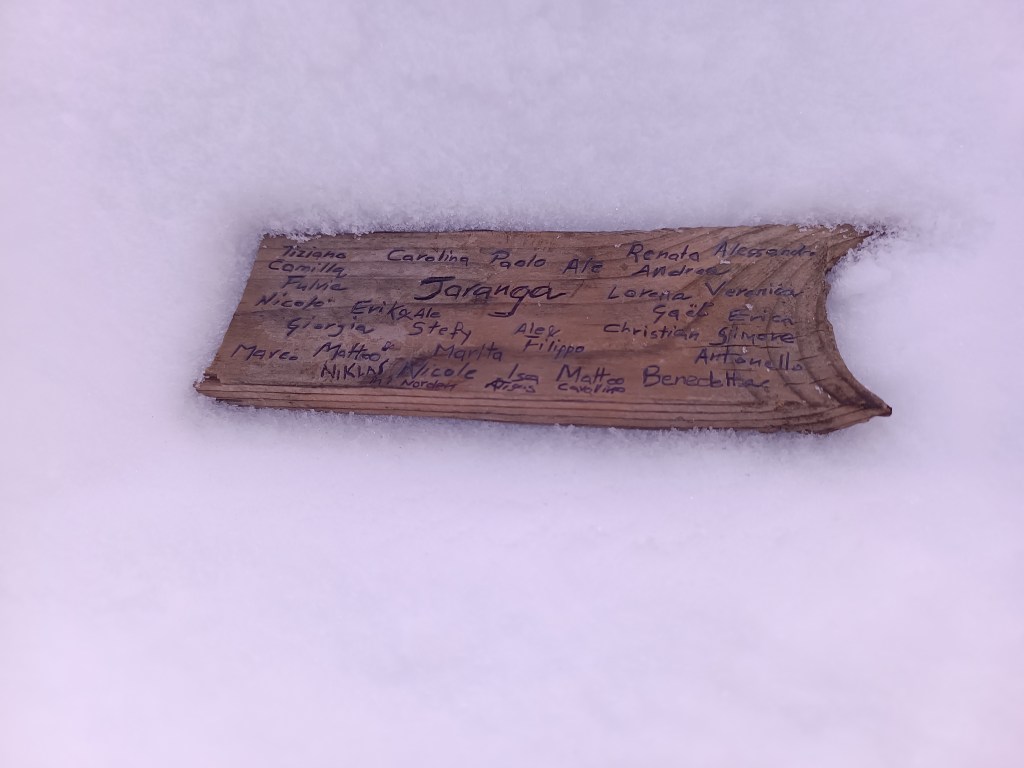 Tiziano Carolina Paolo Ale Renata Alessandro
Camilla Andrea
Fulvio Jaranga Lorena Veronica
Nicolò Erik&Ale Gaël Erica
Giorgia Stefy Alex Christian Simone
Marco Matteo Marita Filippo Antonello
NIKIN Nicole Isa Matteo Benedetta
Carolina